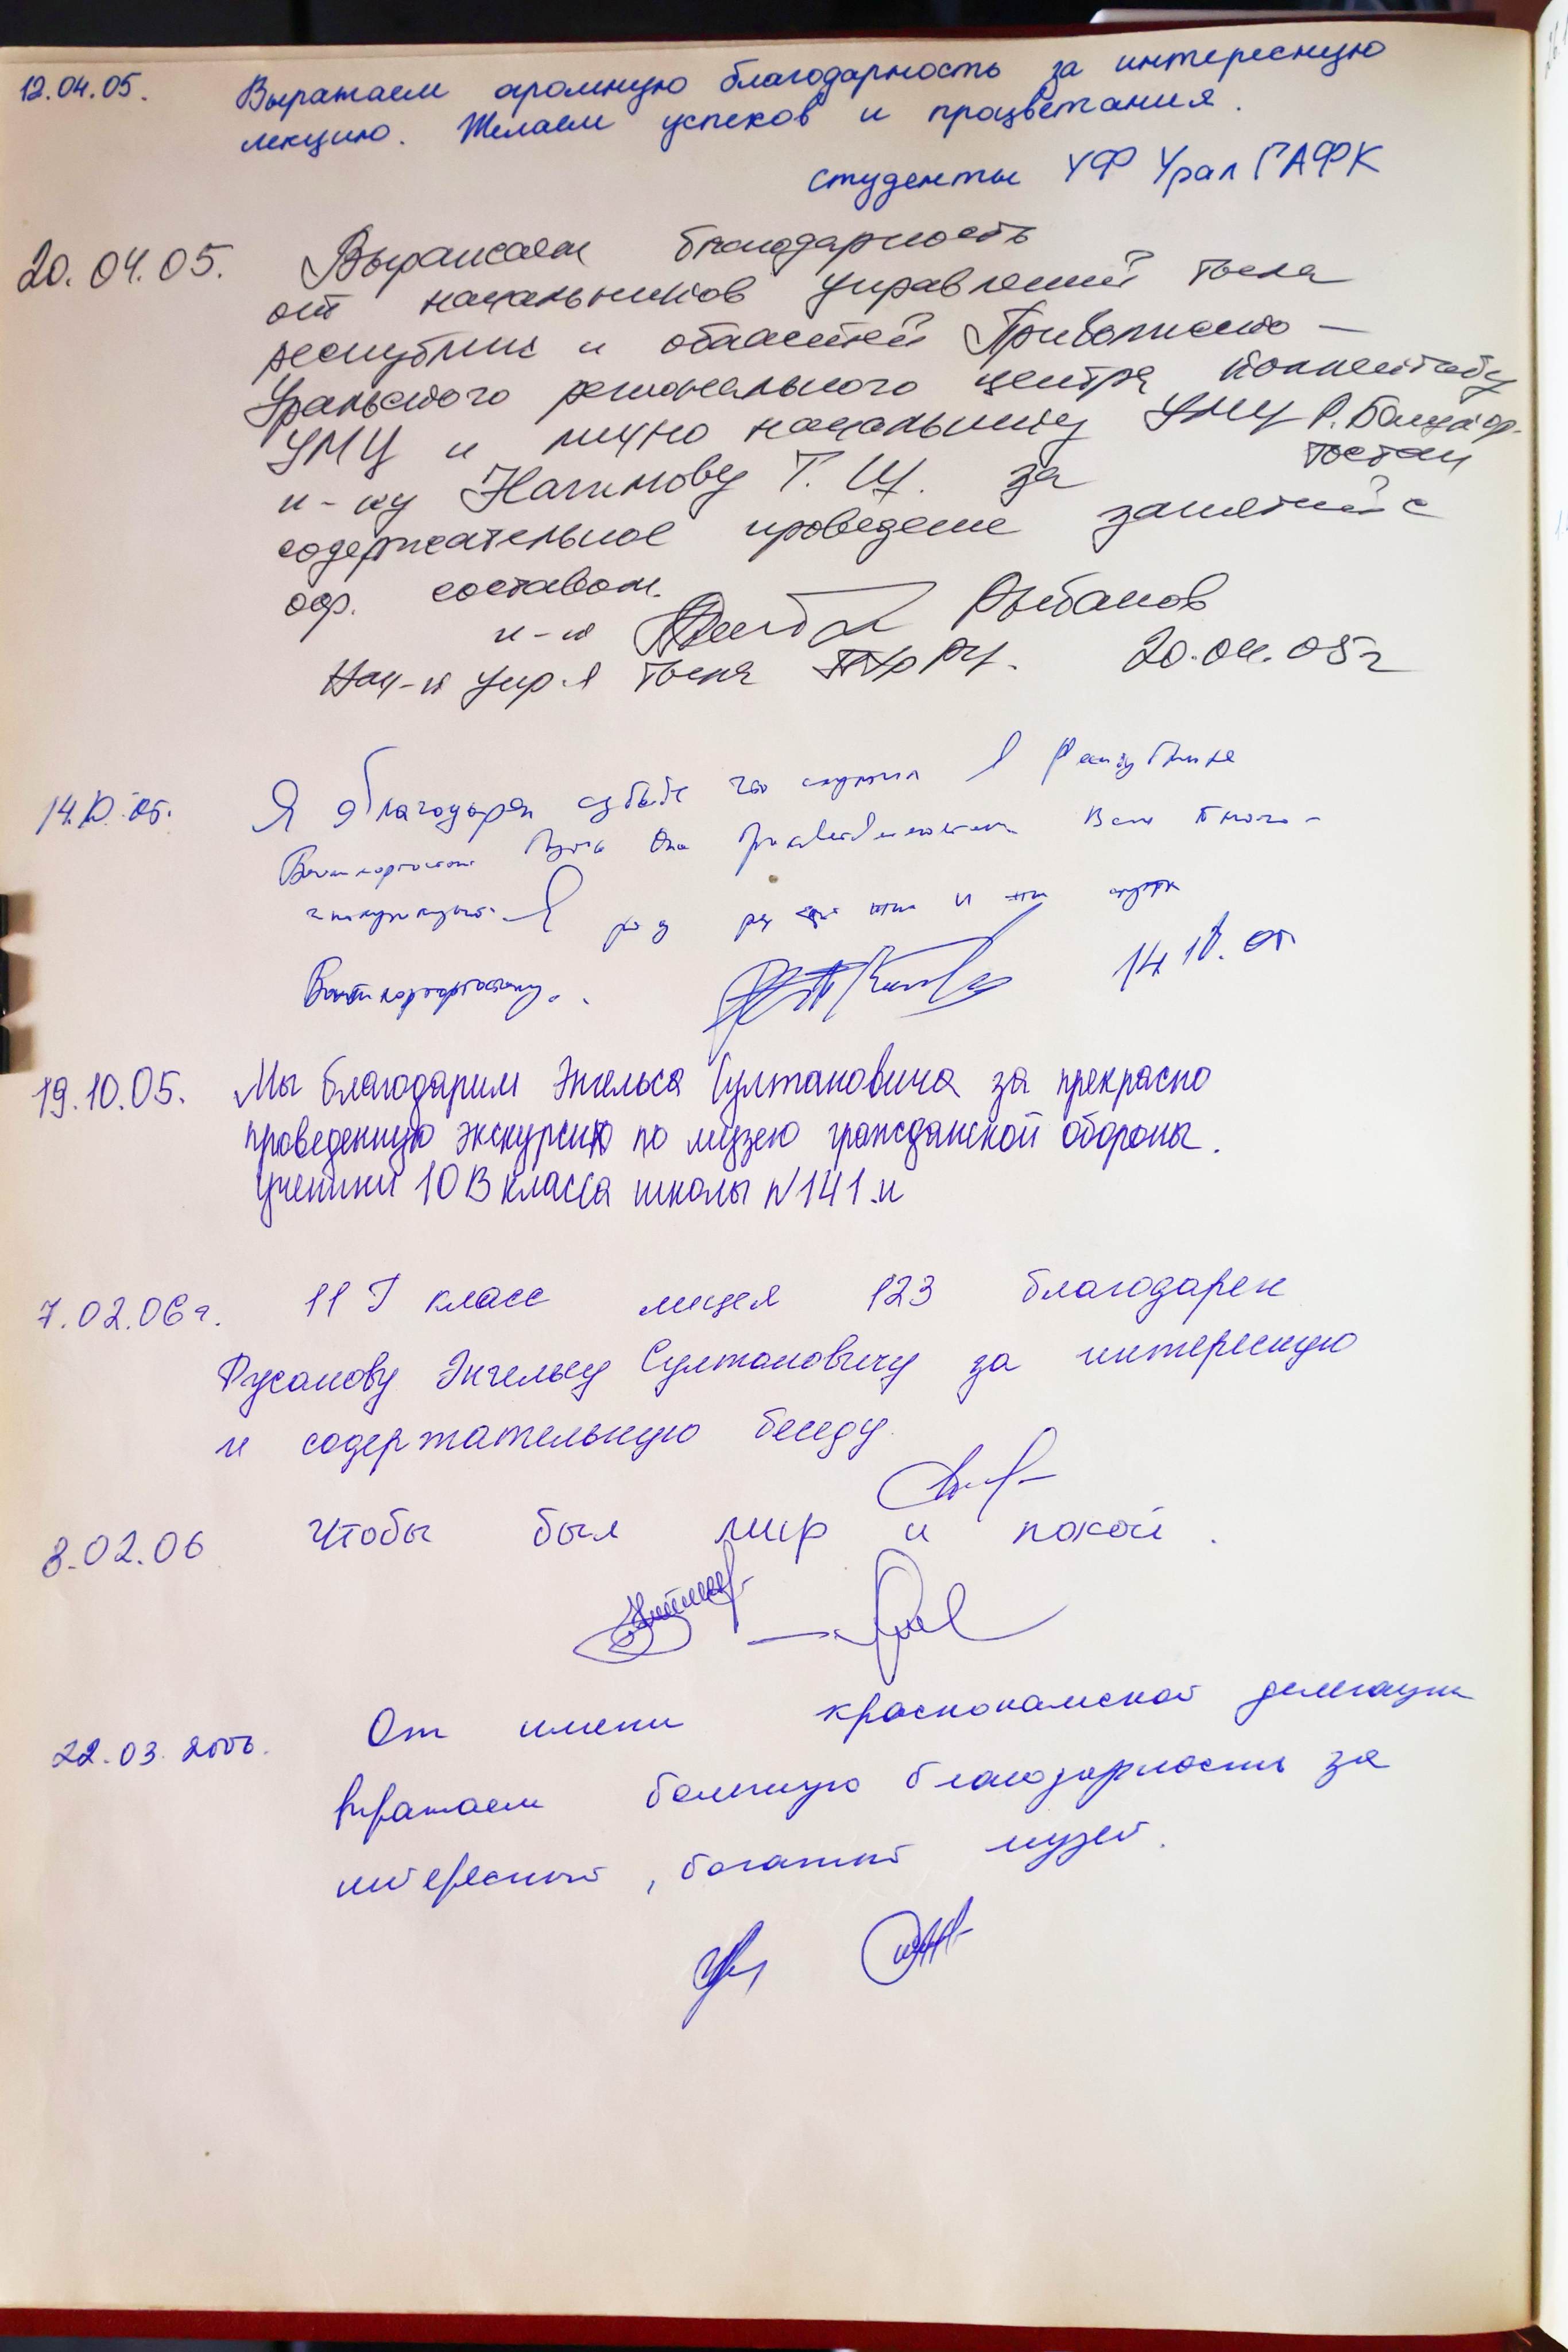 12.04.05. Выражаем огромную благодарность за интересную
лекцию. Желаем успехов и процветания.
студенты УФ УралГАФК
20.04.05. Выражаем благодарность
от начальников управлений тыла
республик и областей Приволжско-
Уральского регионального центра коллективу
УМЦ и лично начальнику УМЦ Р. Башкор-
тостан
п-ку Нагимову Т. Ш. за
содержательное проведение занятий с
оф. составом.
п-к Рыбаков
Нач-к упр-я тыла ПУрРЦ. 20.04.05г
Я благодарен судьбе что служил в Республике
Башкортостан
Я
Башкортостану.
19.10.05. Мы благодарим Энгельса Султановича за прекрасно
проведенную экскурсию по музею гражданской обороны.
Ученики 10 В класса школы N141.
7.02.06г. 11 Г класс лицея 123 благодарен
Энгельсу Султановичу за интересную
и содержательную беседу.
8.02.06 Чтобы был мир и покой.
22.03.2006. От имени краснокамской делегации
выражаем большую благодарность за
интересный, богатый музей.